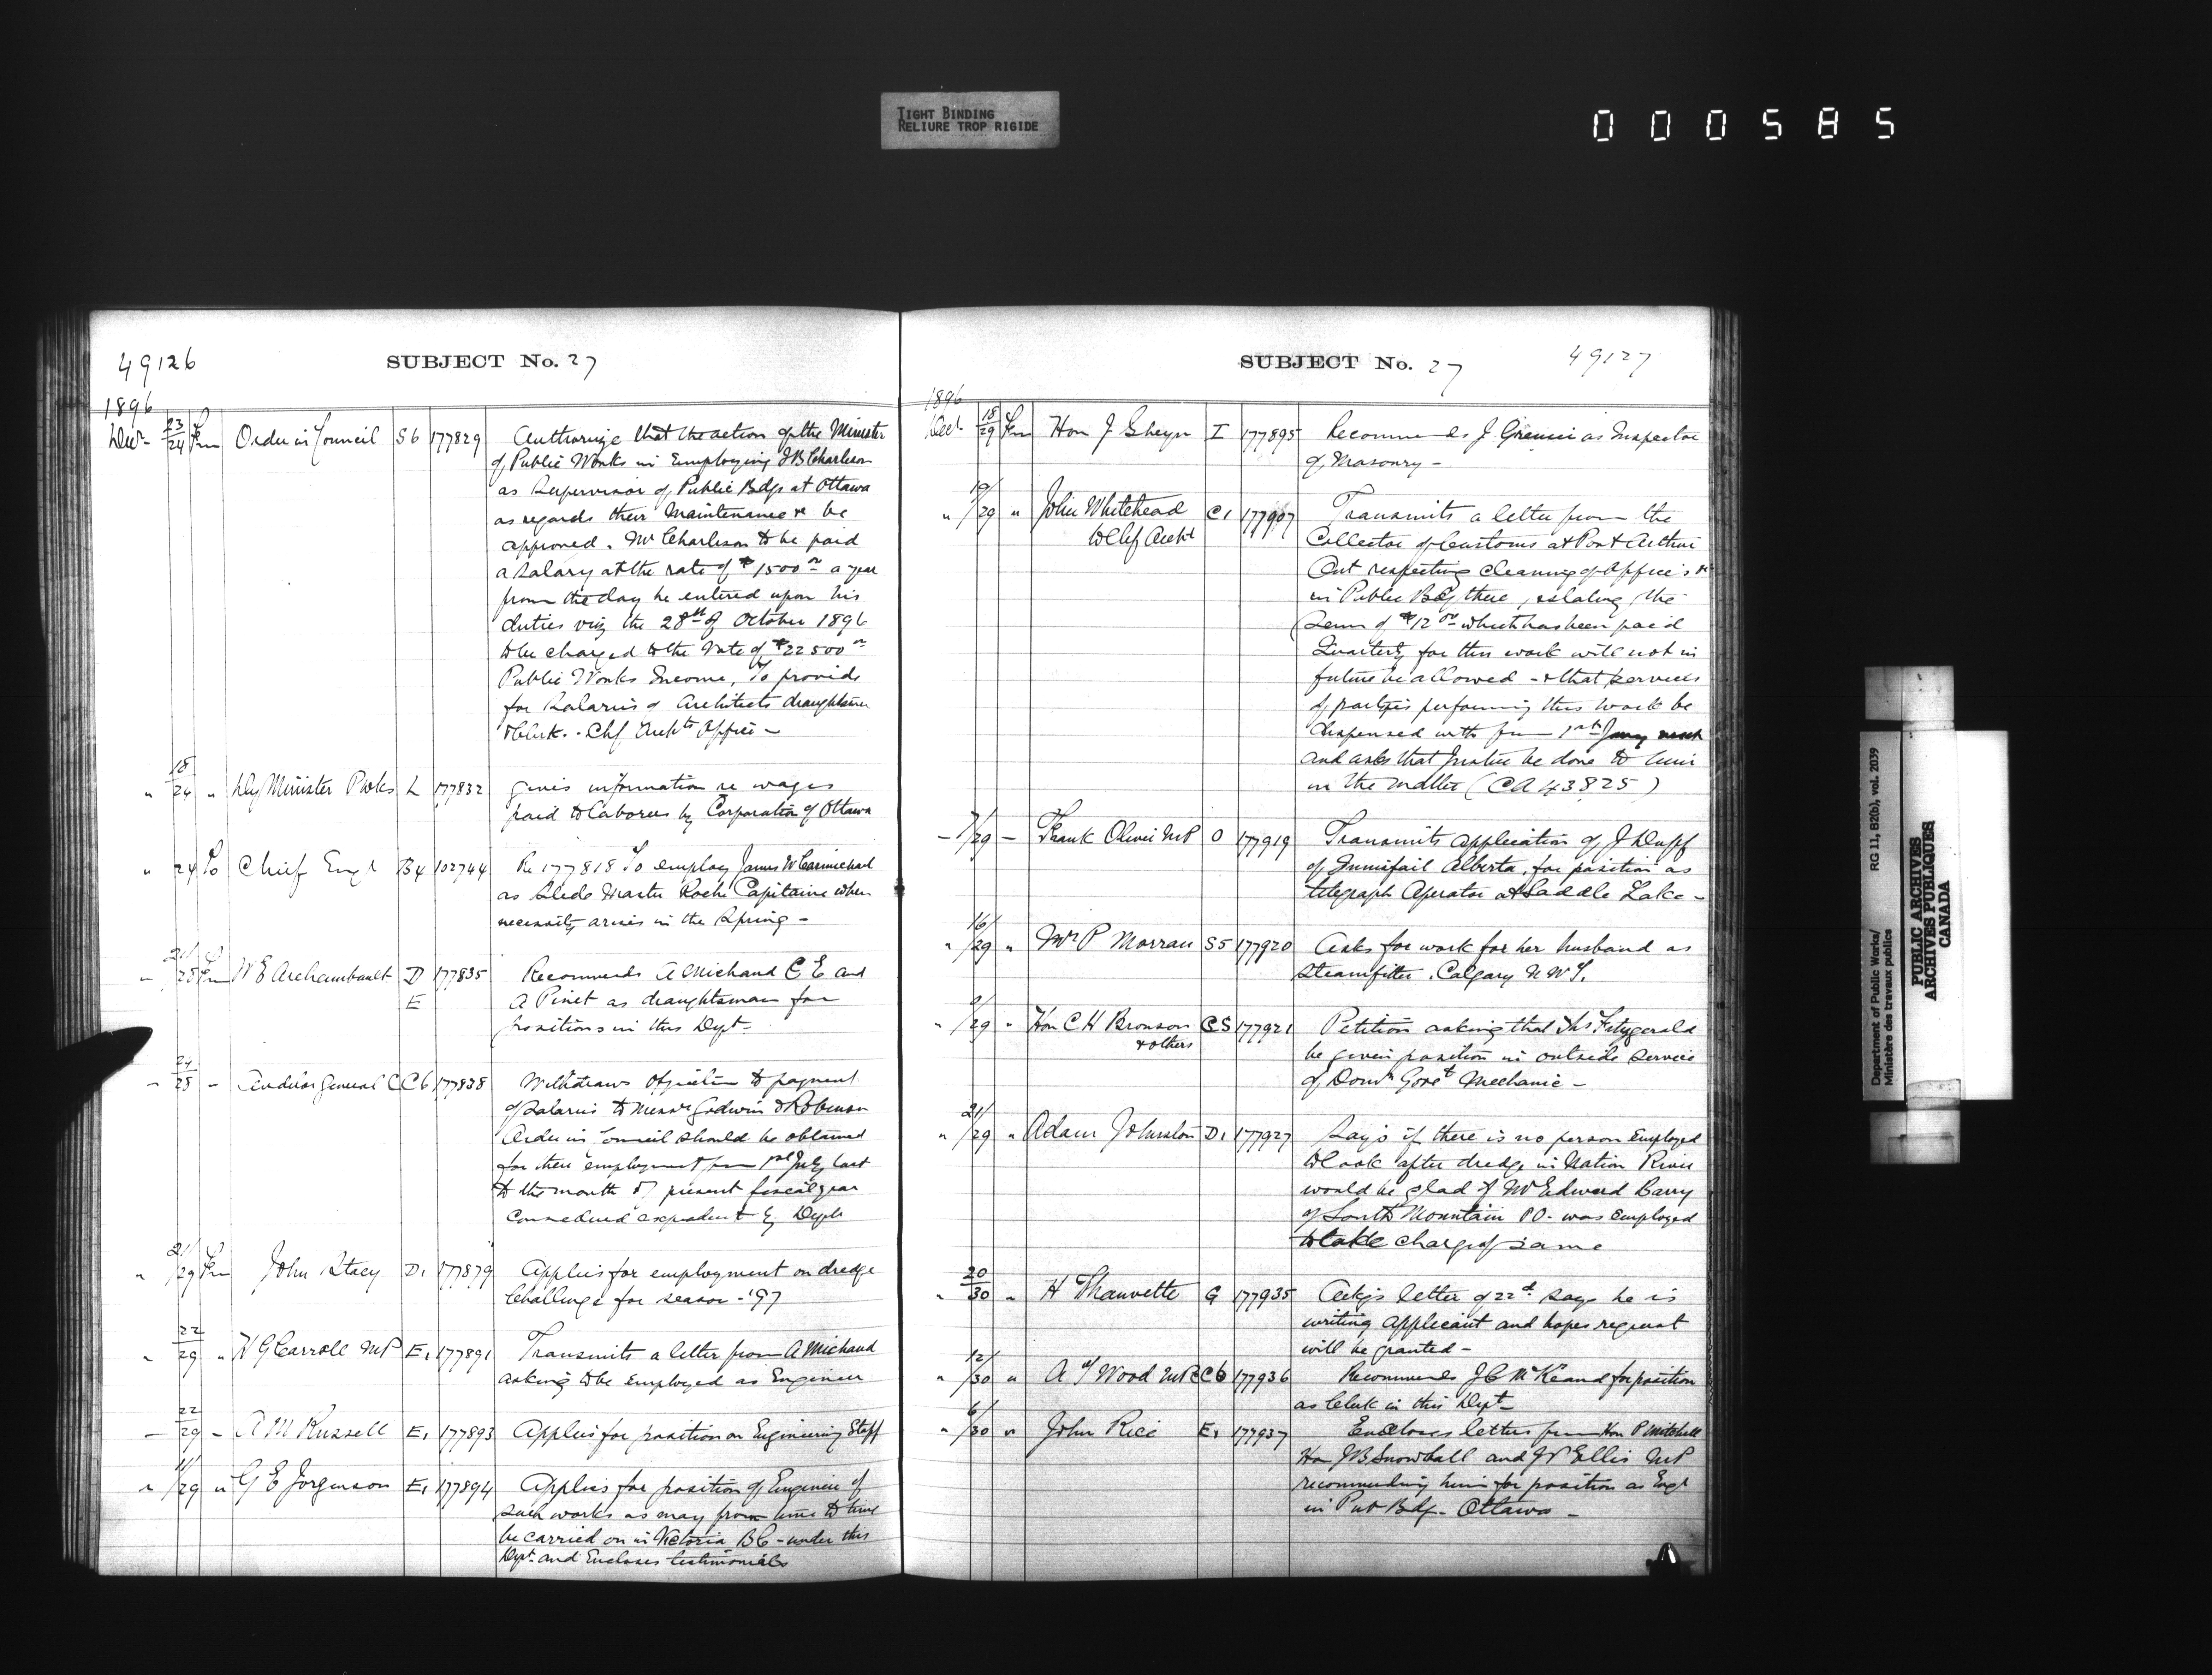 TIGHT BINDING
RELIURE TROP RIGIDE
000585
49126
SUBJECT No. 27
1896
Decr 23/24 Fm Order in Council S6 177829 Authorize that the action of the Minister
of Public Works in Employing J B Charleson
as Supervisor of Public Bdgs at Ottawa
as regards their Maintenance &c be
approved. Mr Charleson to be paid
a salary at the rate of $1500 00 a year
from the day he entered upon his
duties viz the 28th of October 1896
to be charged to the Vote of $22500 00
Public Works Income, To provide
for Salaries of Architects draughtsmen
& Clerk. - Chf Archts Office -
" 18/24 " Dy Minister P Wks L 177832 gives information re wages
paid to laborers by Corporation of Ottawa
" 24 To Chief Engr B4 102744 Re 177818 To employ James W Carmichael
as Slide Master Roche Capitaine when
necessity arises in the Spring -
" 21/28 Fm W E Archambault D E 177835 Recommends A Michaud C E and
A Pinet as draughtsman for
positions in this Dept -
" 24/28 " Auditor General C C6 177838 Withdraws Objection to payment
of Salaries to Messrs Godwin & Robinson
Order in Council should be obtained
for their employment from 1st July last
to the month of present fiscal year
considered expedient by Dept
" 21/29 Fm John Stacy D1 177879 Applies for employment on dredge
Challenge for season - '97
" 22/29 " H G Carroll MP E1 177891 Transmits a letter from A Michaud
asking to be employed as Engineer
" 22/29 " A M Russell E1 177893 Applies for position on Engineering Staff
" 11/29 " G E Jorgenson E1 177894 Applies for position of Engineer of
such works as may from time to time
be carried on in Victoria BC - under this
Dept and Encloses testimonials
SUBJECT No. 27
49127
1896
Decr 18/29 Fm Hon J Shehyn I 177895 Recommends J as Inspector
of Masonry -
" 19/29 " John Whitehead to Chf Archt C1 177907 Transmits a letter from the
Collector of Customs at Port Arthur
Ont respecting cleaning of Offices &c
in Public Bdg there, stating the
Sum of $12 00 which has been paid
Quarterly for this work will not in
future be allowed - & that services
of parties performing this work be
dispensed with from 1st Jany next
and asks that Justice be done to him
in the matter (CA 43825)
- 7/29 - Frank Oliver MP O 177919 Transmits application of J Duff
of Innisfail Alberta, for position as
telegraph Operator at Saddle Lake -
" 16/29 " Mrs P Morran S5 177920 Asks for work for her husband as
Steamfitter. Calgary N W T.
" 9/29 " Hon C H Bronson & others CS 177921 Petition asking that Jas Fitzgerald
be given position in outside Service
of Domn Govt Mechanic -
" 21/29 " Adam Johnston D1 177927 Says if there is no person Employed
to look after dredge in Nation River
would be glad if Mr Edward Barry
of South Mountain PO. was Employed
to take charge of same
" 20/30 " H Thauvette G 177935 Ackgs letter of 22d Says he is
writing applicant and hopes request
will be granted -
" 12/30 " A T Wood MP C6 177936 Recommends J C McKeand for position
as Clerk in this Dept -
" 6/30 " John Rice E1 177937 Encloses letters from Hon P Mitchell
Hon J B Snowball and J V Ellis MP
recommending him for position as Engr
in Pub Bdg - Ottawa -
Department of Public Works/
Ministère des travaux publics
RG 11, B2(b), vol. 2039
PUBLIC ARCHIVES
ARCHIVES PUBLIQUES
CANADA